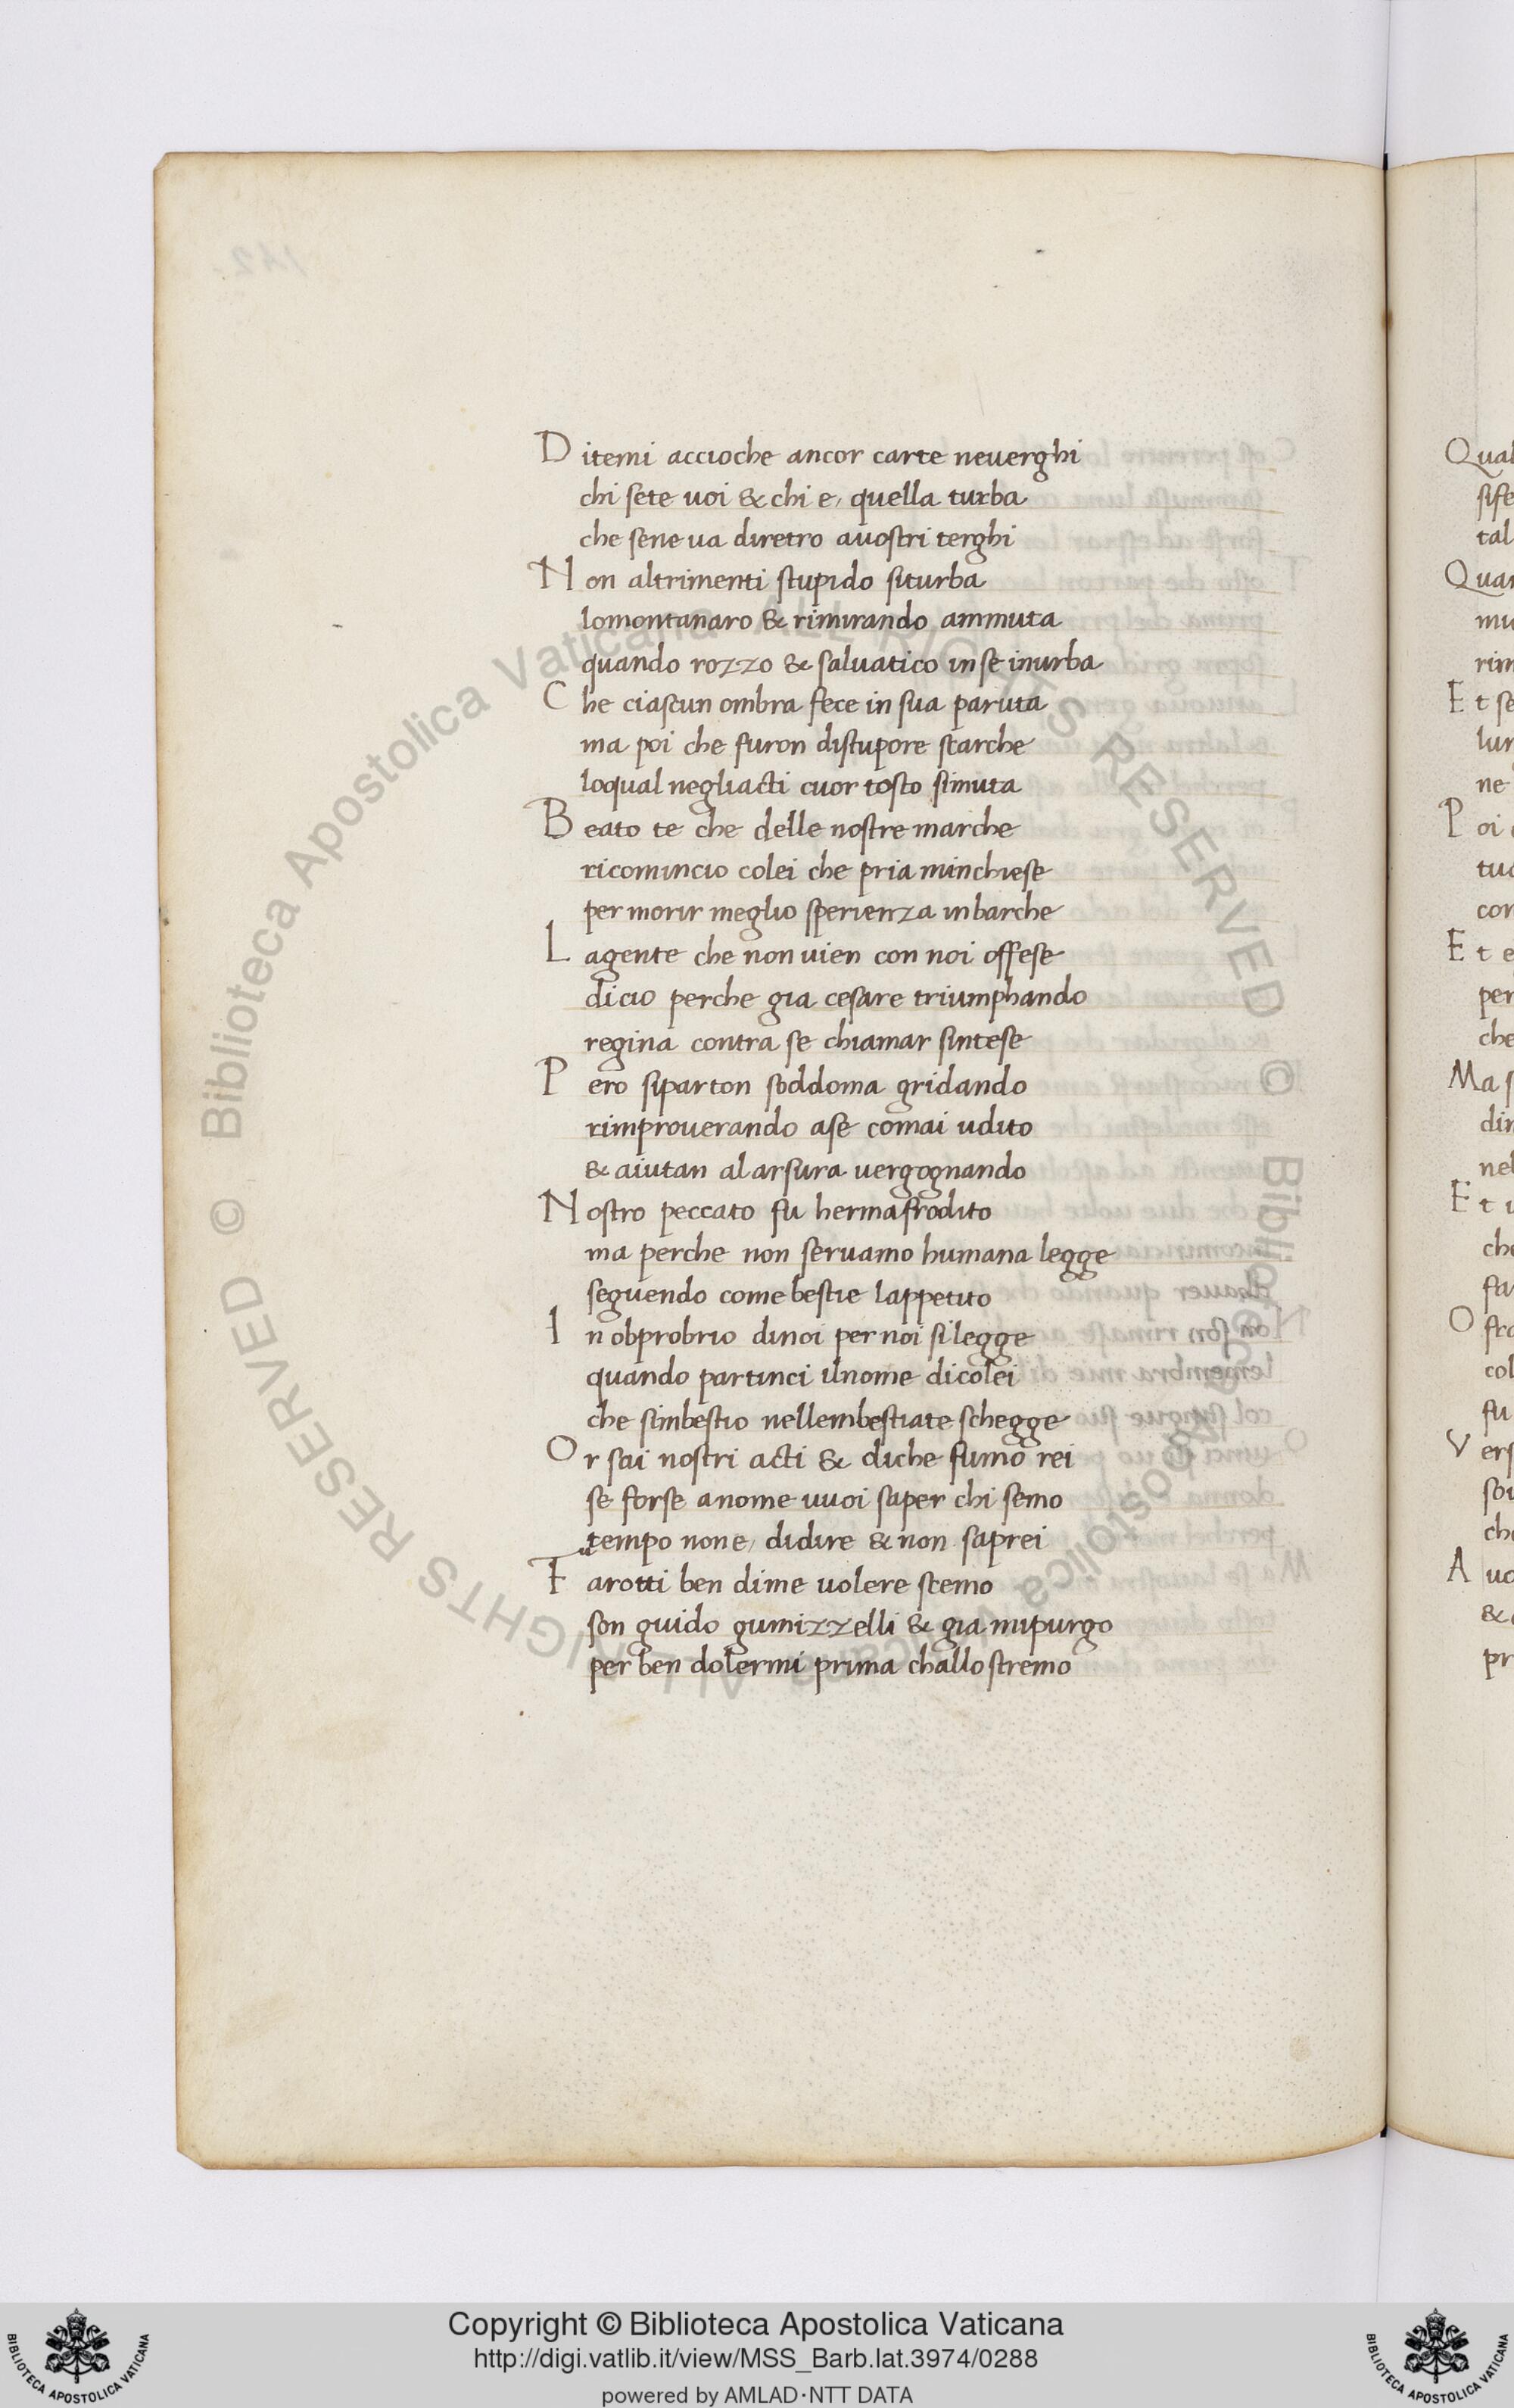 D itemi accioche ancor carte neuerghi
chi sete uoi & chi e, quella turba
che sene ua diretro auostri terghi
N on altrimenti stupido siturba
lomontanaro & rimirando ammuta
quando rozzo & saluatico inse inurba
C he ciascun ombra fece in sua paruta
ma poi che furon distupore scarche
loqual negliacti cuor tosto simuta
B eato te che delle nostre marche
ricomincio colei che pria minchiese
per morir meglio sperienza inbarche
L agente che non uien con noi offese
dicio perche gia cesare triumphando
regina contra se chiamar sintese
P ero siparton soddoma gridando
rimprouerando ase comai udito
& aiutan al arsura uergognando
N ostro peccato fu hermafrodito
ma perche non seruamo humana legge
seguendo come bestie lappetito
I n obprobrio dinoi per noi silegge
quando partinci ilnome dicolei
che simbestio nellembestiate schegge
O r sai nostri acti & diche fumo rei
se forse anome uuoi saper chi semo
tempo none, didire & non saprei
F arotti ben dime uolere scemo
son guido guinizzelli & gia mipurgo
per ben dolermi prima challostremo
Qual
sife
tal
Quan
mu
rim
E t se
lun
ne
P oi
tuo
con
E t e
per
che
Ma s
dir
nel
E t u
che
far
O fra
col
fu
V ers
son
che
A uo
&
pr
© Biblioteca Apostolica Vaticana ALL RIGHTS RESERVED © Biblioteca Apostolica Vaticana ALL RIGHTS RESERVED
BIBLIOTECA APOSTOLICA VATICANA
Copyright © Biblioteca Apostolica Vaticana
http://digi.vatlib.it/view/MSS_Barb.lat.3974/0288
powered by AMLAD·NTT DATA
BIBLIOTECA APOSTOLICA VATICANA